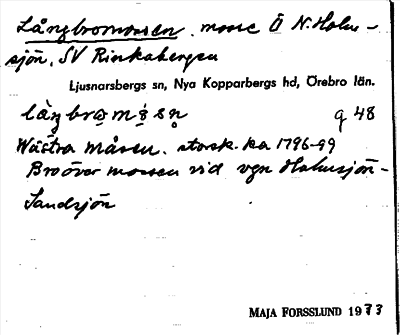 Långbromossen, mosse Ö N. Holm-
sjön, SV Rinkabergen
Ljusnarsbergs sn, Nya Kopparbergs hd, Örebro län.
g 48
Wästra Måsen. storsk. ka 1796-99
Bro över mossen vid vgn Holmsjön-
Sandsjön
MAJA FORSSLUND 1973